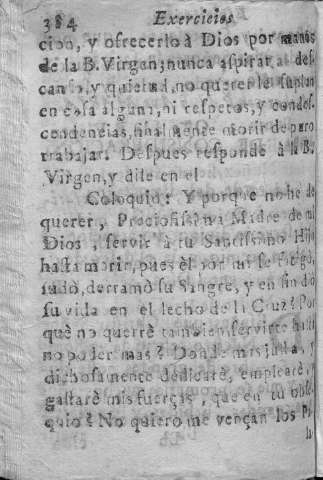 384 Exercicios
cion, y ofrecerlo à Dios por manos
de la B. Virgen; nunca aspirar al des-
canso, y quietud, no querer le suplan
en cosa alguna, ni respetos, y condes-
cendencias, finalmente morir de puro
trabajar. Despues responde à la B.
Virgen, y dile en el
Coloquio: Y porque no he de
querer, Preciosissima Madre de mi
Dios, servir à tu Santissimo Hijo
hasta morir, pues èl por mi se fatigò,
sudò, derramò su Sangre, y en fin diò
su vida en el lecho de la Cruz? Por
què no querrè tambien servirte hasta
no poder mas? Donde mis justa, y
dichosamente dedicarè, emplearè,
gastarè mis fuerças, que en tu obse-
quio? No quiero me vençan los